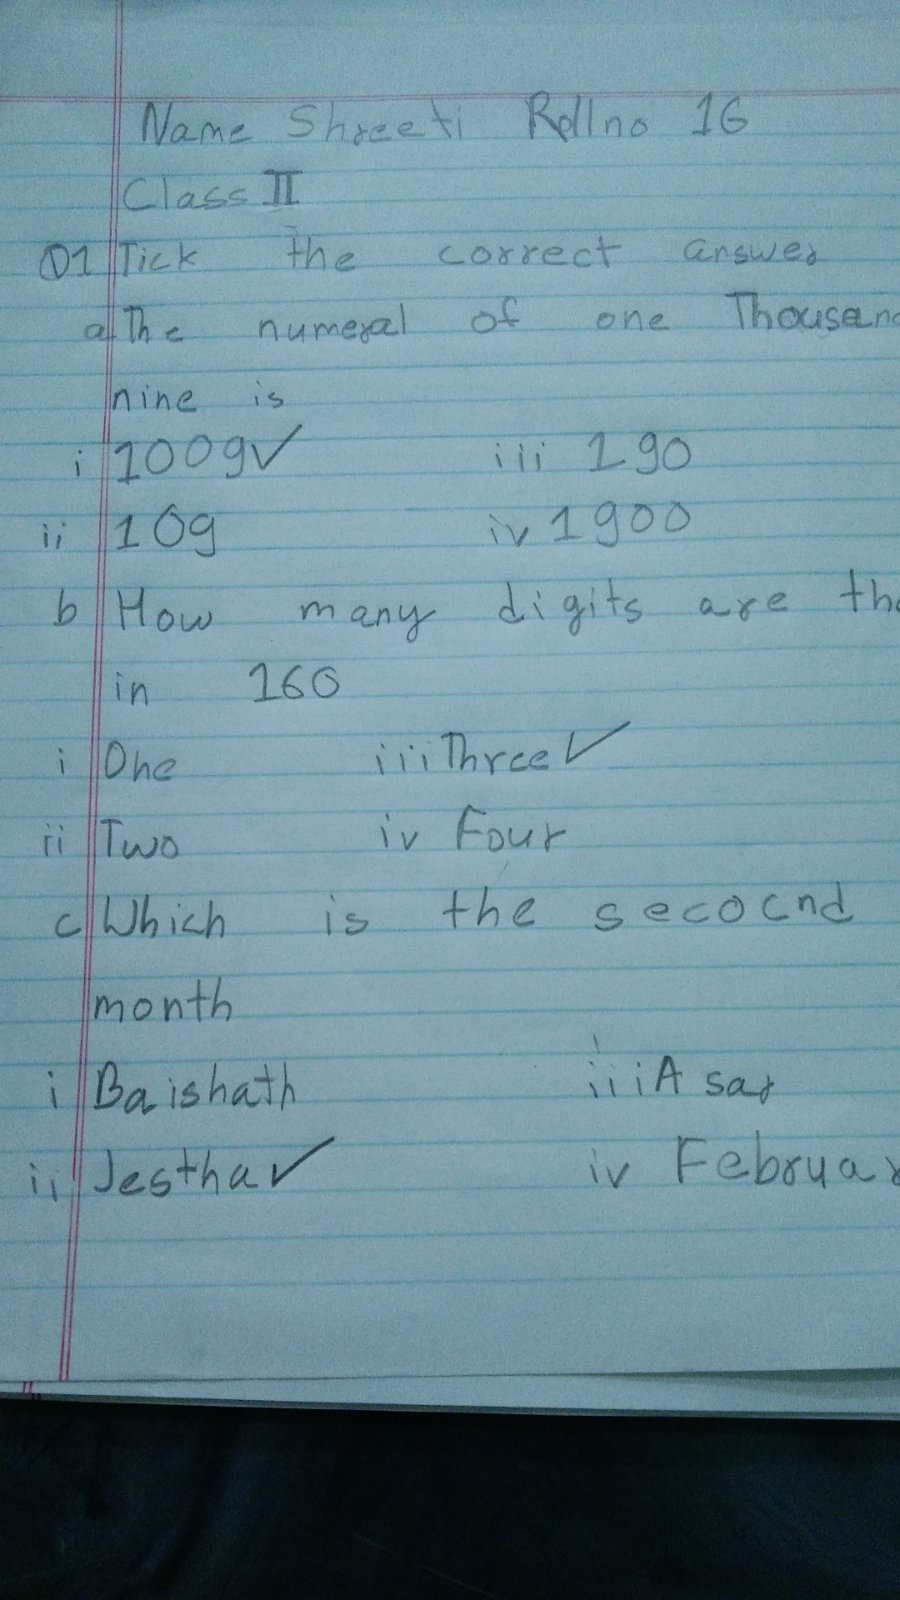 Name Shreeti Rollno 16
Class II
Q1 Tick the correct answer
a The numeral of one Thousand
nine is
i 1009✓ iii 190
ii 109 iv 1900
b How many digits are the
in 160
i One iii Three✓
ii Two iv Four
c Which is the secocnd
month
i Baishath iii Asar
ii Jestha✓ iv Februar